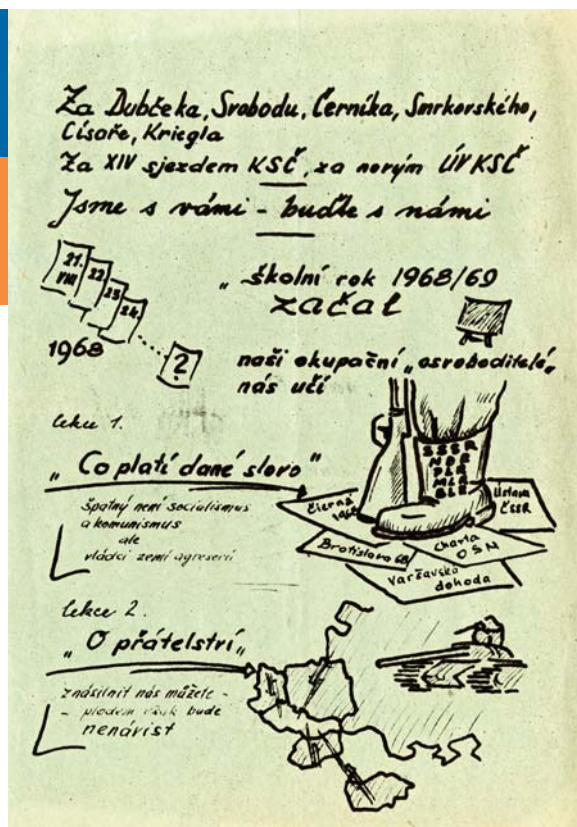 Za Dubčeka, Svobodu, Černíka, Smrkovského,
Císaře, Kriegla
Za XIV sjezdem KSČ, za novým ÚV KSČ
Jsme s vámi - buďte s námi
21. VIII
22
23
24.
?
1968
„školní rok 1968/69
začal
naši okupační „osvoboditelé„
nás učí
lekce 1.
„Co platí dané slovo"
špatný není socialismus
a komunismus
ale
vládci zemí agreserů
SSSR
NDR
PLR
MLR
BLR
Čierná
1968
Ústava
ČSSR
Bratislava 68
Charta
OSN
Varšavská
dohoda
lekce 2.
„O přátelství„
znásilnit nás můžete -
- plodem však bude
nenávist